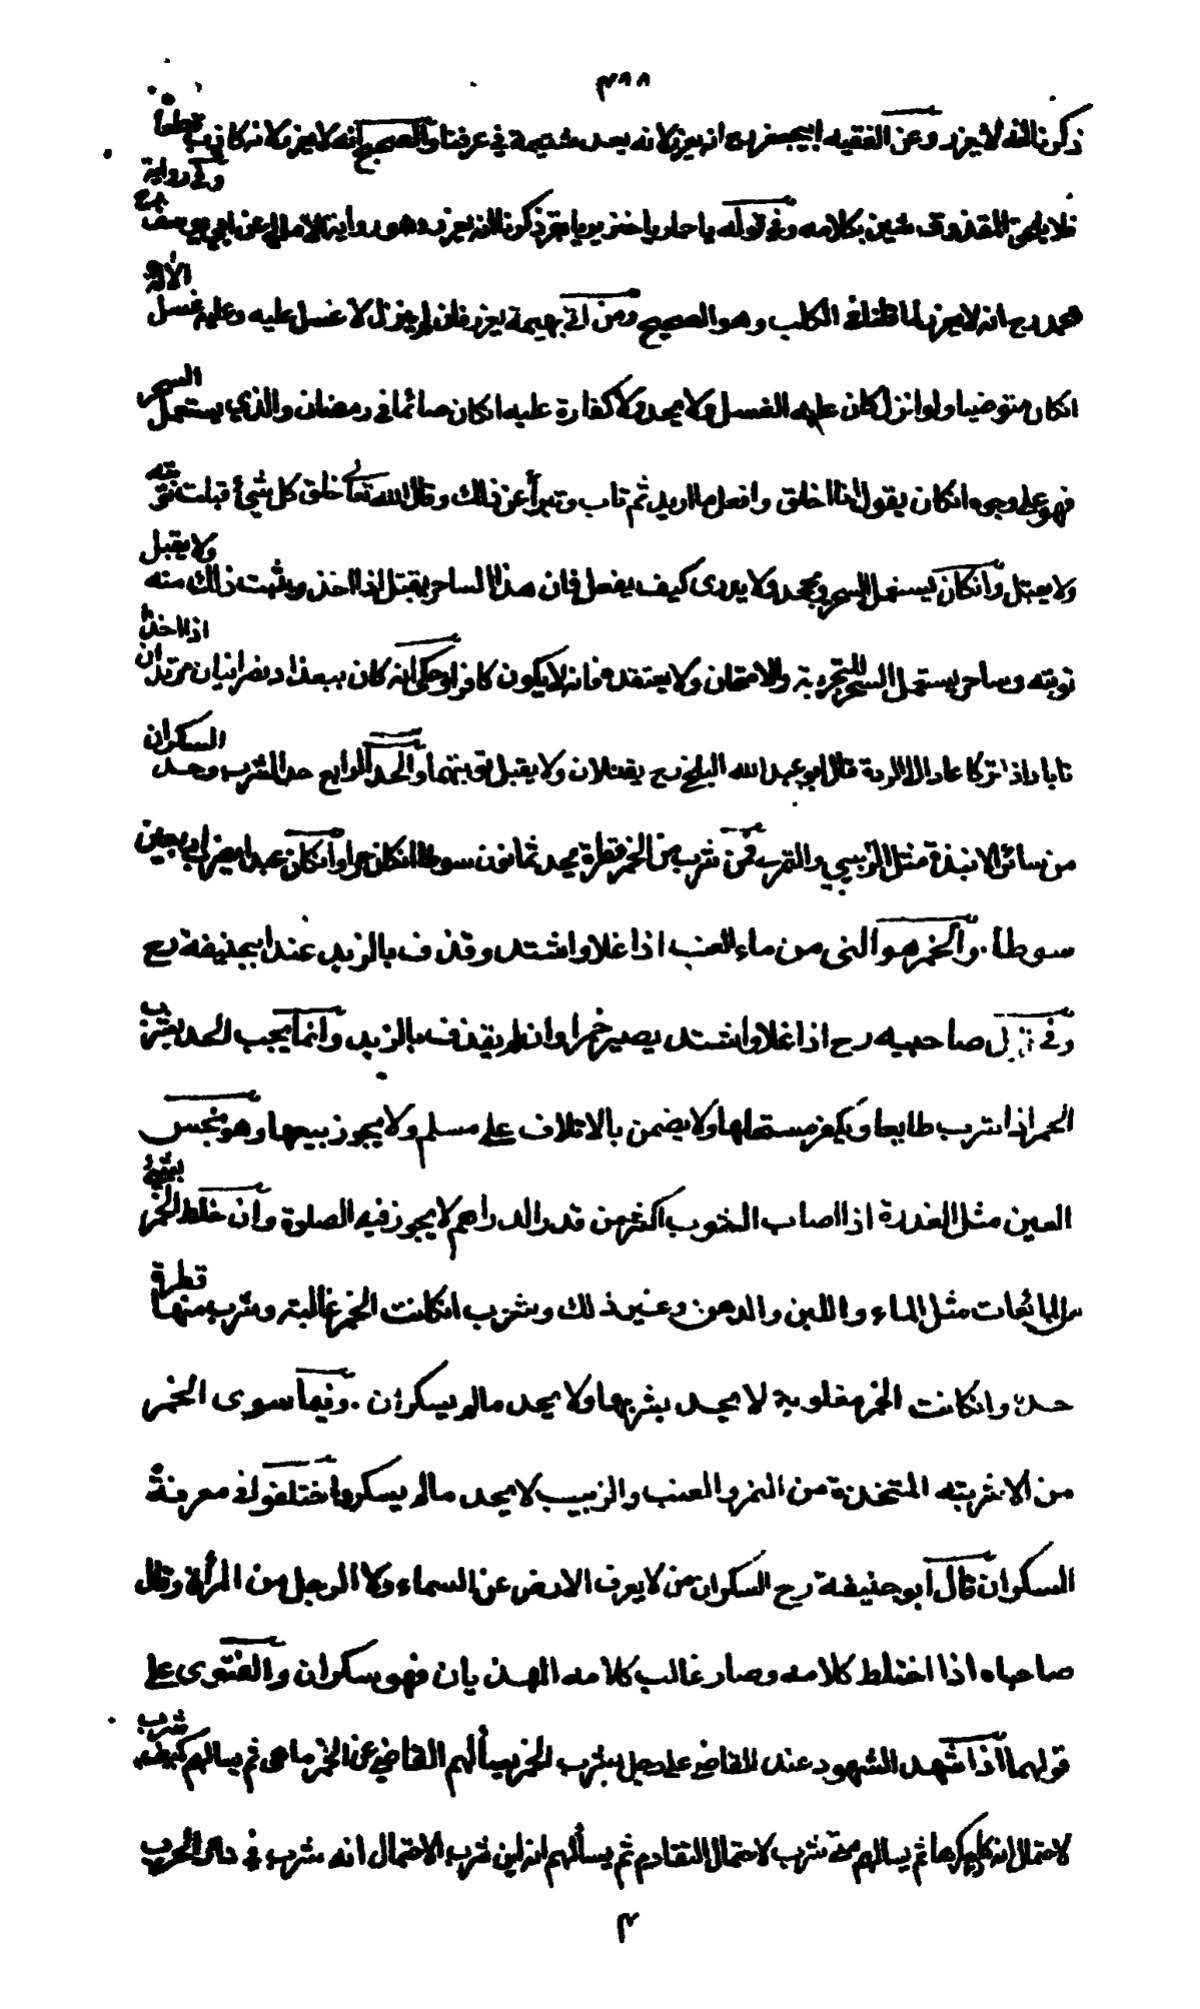 ٣٨٨
ذكرنا انه لا يعزر وعن الفقيه ابيجعفر رح انه يعزر لانه يعد شتيمة في عرفنا والصحيح انه لا يعزر لانه كاذب قطعا
فلا يلحق المقذوف شين بكلامه وفي قوله يا حمار يا خنزير يا بقر ذكرنا انه يعزر وهو رواية الامالي عن ابي يوسف رح وفي رواية
محمد رح انه لا يعزر لما قلنا في الكلب وهو الصحيح ومن اتى بهيمة يعزر فان لم ينزل لا غسل عليه وعليه غسل الآلة
انكان متوضيا ولو انزل كان عليه الغسل ولا يحد ولا كفارة عليه انكان صائما في رمضان والذي يستعمل السحر
فهو على وجوه انكان يقول انا اخلق وافعل ما اريد ثم تاب وتبرأ عن ذلك وقال الله تعالى خلق كل شيئ قبلت توبته
ولا يقتل وانكان يستعمل السحر ويجحد ولا يدرى كيف يفعل فان هذا الساحر يقتل اذا اخذ ويثبت ذلك منه ولا يقبل
توبته وساحر يستعمل السحر للتجربة والامتحان ولا يعتقده فانه لا يكون كافرا وحكى انه كان ببغداد نصرانيان مرتدان اذا اخذا
تابا واذا تركا عادا الى الردة قال ابو عبد الله البلخي رح يقتلان ولا يقبل توبتهما والحد الرابع حد الشرب وحد السكران
من سائر الانبذة مثل الزبيب والتمر فمن شرب من الخمر قطرة يحد ثمانون سوطا انكان حرا وانكان عبدا يضرب اربعين
سوطا. والخمر هو النى من ماء العنب اذا غلا واشتد وقذف بالزبد عند ابيحنيفة رح
وفي قول صاحبيه رح اذا غلا واشتد يصير خمرا وان لم يقذف بالزبد وانما يجب الحد بشرب
الخمر اذا شرب طايعا ويكفر مستحلها ولا يضمن بالاتلاف على مسلم ولا يجوز بيعها وهو نجس
العين مثل العذرة اذا اصاب الثوب اكثر من قدر الدراهم لا يجوز فيه الصلوة وان خلط الخمر بشيئ
من المائعات مثل الماء واللبن والدهن وغير ذلك وشرب انكانت الخمر غالبة وشرب منها قطرة
حد وانكانت الخمر مغلوبة لا يحد بشربها ولا يحد مالم يسكران. وفيما سوى الخمر
من الاشربته المتخذة من التمر والعنب والزبيب لا يحد مالم يسكر واختلفوا في معرفة
السكران قال ابو حنيفة رح السكران من لا يعرف الارض عن السماء ولا الرجل من المرأة وقال
صاحباه اذا اختلط كلامه وصار غالب كلامه الهذيان فهو سكران والفتوى على
قولهما اذا شهد الشهود عند القاضي على رجل بشرب الخمر يسألهم القاضي عن الخمر ما هي ثم يسالهم كيف شرب
لاحتمال انه كان كرها ثم يسالهم متى شرب لاحتمال التقادم ثم يسألهم انه اين شرب لاحتمال انه شرب في دار الحرب
٣